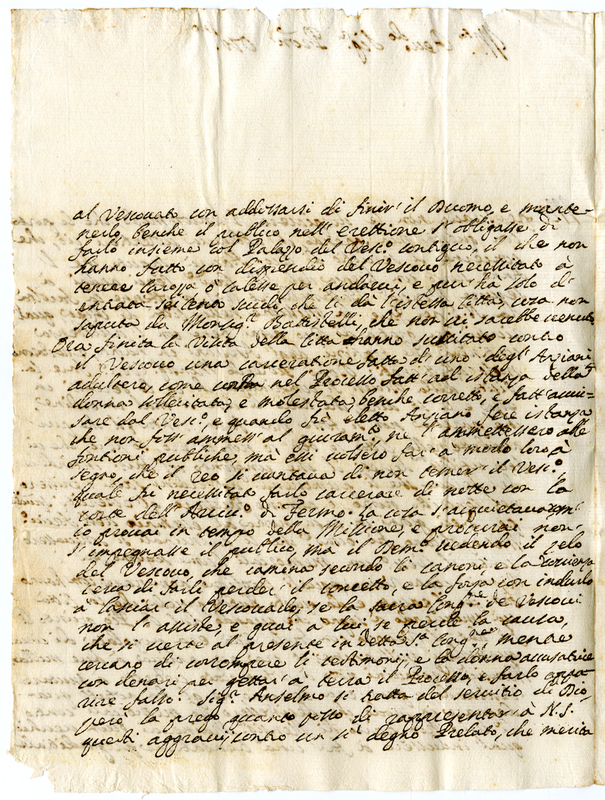 al Vescouato con addossarsi di finir' il Duomo, e mante-
nerlo, benche il publico nell' erettione s' obligasse di
farlo insieme col Palazzo del Vesc.o contiguo, il che non
hanno fatto con dispendio del Vescouo necessitato à
tenere carozza ò calesse per andarui, e pur hà solo d'
entrata secento scudi, che li dà l'istessa Città, cosa non
saputa da Monsig.r Battistelli, che non ui sarebbe uenuto
Ora finita la Visita della Città hanno suscitato contro
il Vescouo una carceratione fatta d' uno degl' Anziani
adultero, come consta nel Processo fatt' ad istanza della
donna sollecitata, e molestata, benche corretto, e fatt' auui-
sare dal Vesc.o, e quando fù eletto Anziano fece istanza
che non foss' ammess' al giuram.to, ne l' ammettessero alle
fontioni publiche, ma essi uolsero far' a modo loro à
segno, che il reo si uantaua di non temer' il Vesc.o
quale fù necessitato farlo carcerare di notte con la
corte dell' Arciu.o di Fermo. la cosa s' acquietaua, com'
io prouai in tempo della Missione, e procurai non
s' impegnasse il publico, ma il Dem.o uedendo il zelo
del Vescouo, che camina secondo li canoni, e la
cerca di farli perder' il concetto, e la forza con indurlo
à lasciar' il Vescouado, se la sacra Cong.ne de Vescoui
non l' assiste, e guai a lui se perde la causa,
che si uerte al presente in detta S.a Cong.ne, mentre
cercano di corrompere li testimonij, e la donna accusatrice
con denari per gettar' a terra il Processo, e farlo appa-
rire falso. Sig.r Anselmo si tratta del seruitio di Dio,
però la prego quanto posso di rappresentar' à N.S.
questi aggrauij contro un sì degno Prelato, che merita